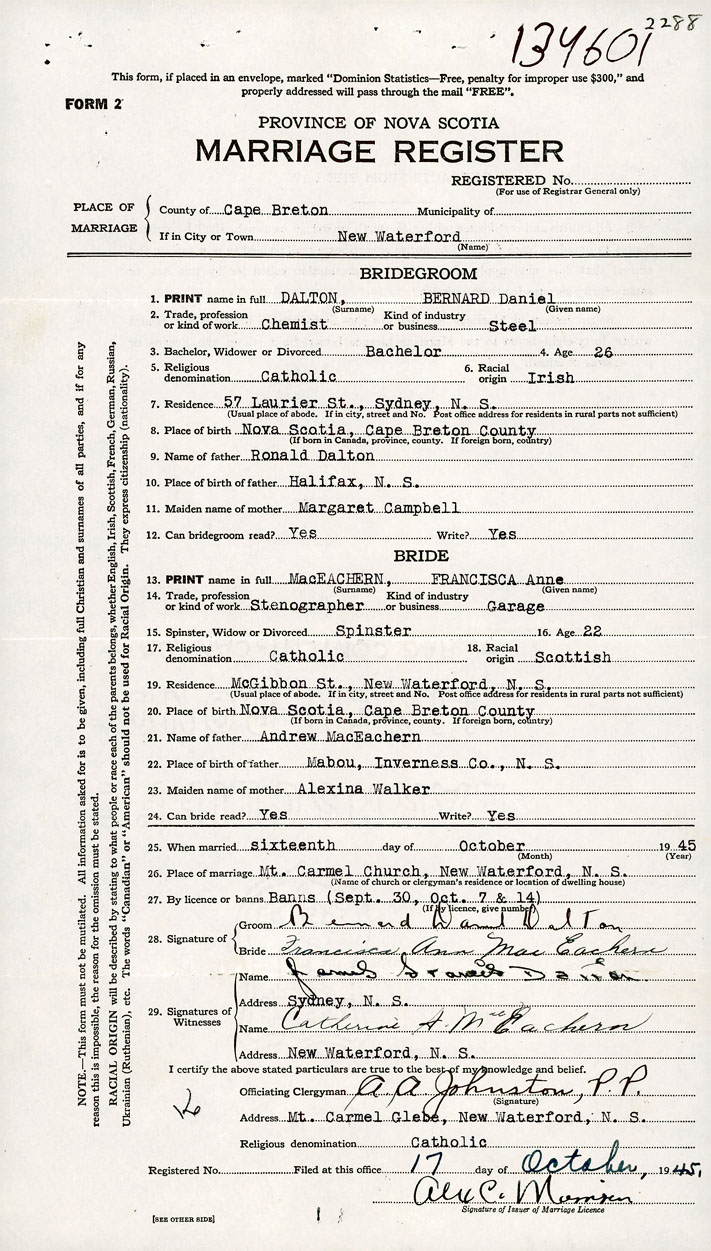 2288
134601
This form, if placed in an envelope, marked "Dominion Statistics—Free, penalty for improper use $300," and
properly addressed will pass through the mail "FREE".
FORM 2
PROVINCE OF NOVA SCOTIA
MARRIAGE REGISTER
REGISTERED No.
(For use of Registrar General only)
PLACE OF MARRIAGE
County of Cape Breton Municipality of
If in City or Town New Waterford
(Name)
BRIDEGROOM
1. PRINT name in full DALTON, BERNARD Daniel
(Surname) (Given name)
2. Trade, profession or kind of work Chemist Kind of industry or business Steel
3. Bachelor, Widower or Divorced Bachelor 4. Age 26
5. Religious denomination Catholic 6. Racial origin Irish
7. Residence 57 Laurier St., Sydney, N. S.
(Usual place of abode. If in city, street and No. Post office address for residents in rural parts not sufficient)
8. Place of birth Nova Scotia, Cape Breton County
(If born in Canada, province, county. If foreign born, country)
9. Name of father Ronald Dalton
10. Place of birth of father Halifax, N. S.
11. Maiden name of mother Margaret Campbell
12. Can bridegroom read? Yes Write? Yes
BRIDE
13. PRINT name in full MacEACHERN, FRANCISCA Anne
(Surname) (Given name)
14. Trade, profession or kind of work Stenographer Kind of industry or business Garage
15. Spinster, Widow or Divorced Spinster 16. Age 22
17. Religious denomination Catholic 18. Racial origin Scottish
19. Residence McGibbon St., New Waterford, N. S.
(Usual place of abode. If in city, street and No. Post office address for residents in rural parts not sufficient)
20. Place of birth Nova Scotia, Cape Breton County
(If born in Canada, province, county. If foreign born, country)
21. Name of father Andrew MacEachern
22. Place of birth of father Mabou, Inverness Co., N. S.
23. Maiden name of mother Alexina Walker
24. Can bride read? Yes Write? Yes
25. When married sixteenth day of October 1945
(Month) (Year)
26. Place of marriage Mt. Carmel Church, New Waterford, N. S.
(Name of church or clergyman's residence or location of dwelling house)
27. By licence or banns Banns (Sept. 30, Oct. 7 & 14)
(If by licence, give number)
28. Signature of
Groom Bernard Daniel Dalton
Bride Francisca Ann MacEachern
29. Signatures of Witnesses
Name James Francis Dalton
Address Sydney, N. S.
Name Catherine A. McEachern
Address New Waterford, N. S.
I certify the above stated particulars are true to the best of my knowledge and belief.
Officiating Clergyman A. A. Johnston, P. P.
(Signature)
Address Mt. Carmel Glebe, New Waterford, N. S.
Religious denomination Catholic
Registered No. Filed at this office 17 day of October, 1945,
Alex C. Morrison
Signature of Issuer of Marriage Licence
[SEE OTHER SIDE]
NOTE.—This form must not be mutilated. All information asked for is to be given, including full Christian and surnames of all parties, and if for any
reason this is impossible, the reason for the omission must be stated.
RACIAL ORIGIN will be described by stating to what people or race each of the parents belongs, whether English, Irish, Scottish, French, German, Russian,
Ukrainian (Ruthenian), etc. The words "Canadian" or "American" should not be used for Racial Origin. They express citizenship (nationality).